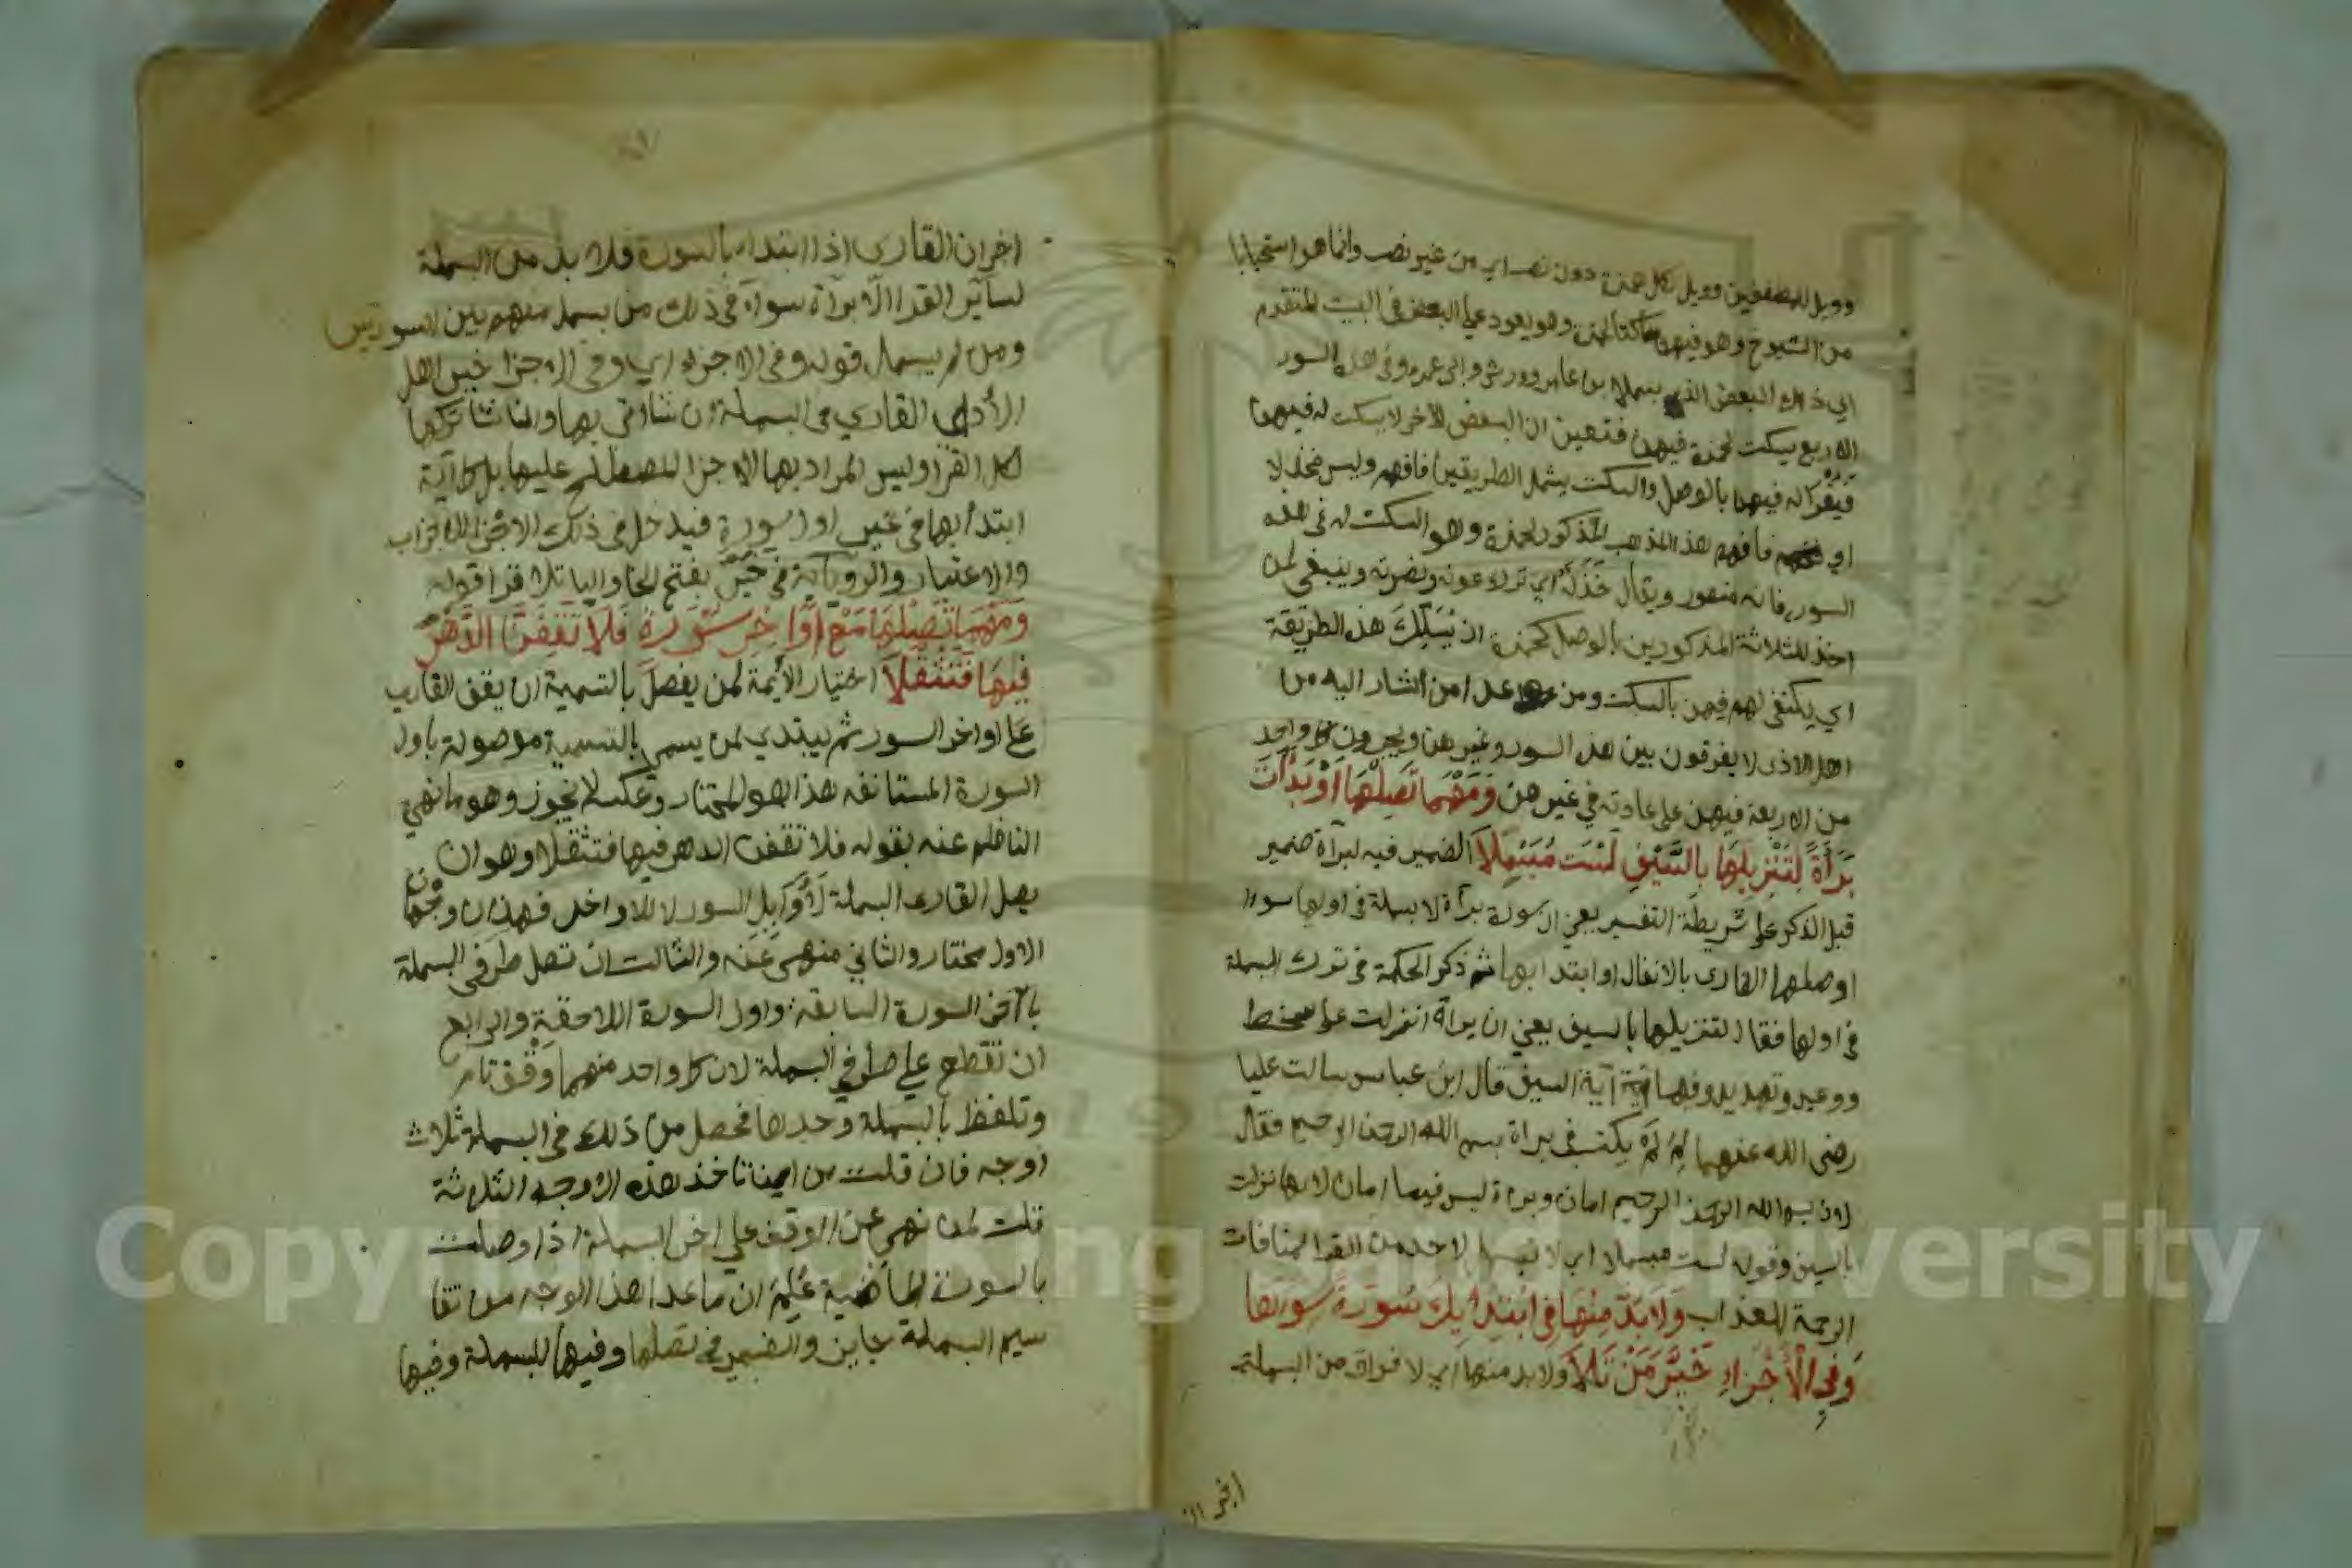 وويل للمطففين وويل لكل همزة دون نص اي من غير نص وانما هو استحبابا
من الشيوخ وهو فيهن ساكتا لحمزة وهو يعود على البعض في البيت المتقدم
اي ذلك البعض الذي بسمل لابن عامر وورش وابي عمرو في هذه السور
الاربع يسكت لحمزة فيهن فتعين ان البعض الاخر لا يسكت له فيهن
فيقرا له فيهن بالوصل والسكت يشمل الطريقين فافهمه وليس مخذلا
اي فافهم هذا المذهب المذكور لحمزة وهو السكت له في هذه
السور فانه منصور ويقال خذله اي ترك عونه ونصرته وينبغي لمن
اخذ للثلاثة المذكورين بالوصل كحمزة ان يسلك هذه الطريقة
اي يكتفي لهم فيهن بالسكت ومن عدا من اشار اليه من
اهل الادى لا يفرقون بين هذه السور وغيرهن ويجرون كل واحد
من الاربعة فيهن على عادته في غيرهن وَمَهْمَا تَصِلْهَا اَوْ بَدَأْتَ
بَرَأَةً لِتَنْزِيلِهَا بِالسَّيْفِ لَسْتَ مُبَسْمِلاَ الضمير فيه لبرآة ضمير
قبل الذكر على شريطة التفسير يعني ان سورة برآة لا بسملة في اولها سوا
اوصلها القارى بالانفال او ابتدا بها ثم ذكر الحكمة في ترك البسملة
في اولها فقال لتنزيلها بالسيف يعني ان براة انزلت على سخط
ووعيد وتهديد وفيها آية السيف قال ابن عباس سالت عليا
رضى الله عنهما لِمَ لَمْ يكتب في براة بسم الله الرحمن الرحيم فقال
لان بسم الله الرحمن الرحيم امان وبراة ليس فيها امان لانها نزلت
بالسيف وقوله لست مبسملا اي لا تبسمل لاحد من القرا لمنافات
الرحمة العذاب وَلاَ بُدَّ مِنْهَا فِي ابْتِدَائِكَ سُورَةً سِوَاهَا
وَفِي الْأَجْزَاءِ خَيَّرَ مَنْ تَلاَ ولا بد منها اي لا فراق من البسملة
اخبر ان القارى اذا ابتدا بالسورة فلا بد من البسملة
لسائر القرا الا برآة سوآء في ذلك من بسمل منهم بين السورتين
ومن لم يبسمل قوله وفي الاجزاء اي وفي الاجزا خير اهل
الأدا القاري في البسملة ان شا اتى بها وان شا تركها
لكل القرا وليس المراد بها الاجزا المصطلح عليها بل كل آية
ابتدأ بها في غير اول سورة فيدخل في ذلك الاجزا الاحزاب
والاعشار والرواية في خَيَّرَ بفتح الخا واليا تلا قرا قوله
وَمَهْمَا تَصِلْهَا مَعْ أَوَاخِرِ سُورَةٍ فَلاَ تَقِفَنَّ الدَّهْرَ
فِيهَا فَتَثْقُلاَ اختيار الأئمة لمن يفصل بالتسمية ان يقف القاري
على اواخر السور ثم يبتدي لمن يسمى بالتسمية موصولة باول
السورة المستانفه هذا هو المختار وعكسه لا يجوز وهو ما نهي
الناظم عنه بقوله فلا تقفن الدهر فيها فتثقلا وهو ان
يصل القارى البسملة لأوايل السور لا للاواخر فهذان وجهان
الاول مختار والثاني منهي عنه والثالث ان تصل طرفى البسملة
بآخر السورة السابقة واول السورة اللاحقة والرابع
ان تقطع على طرفي البسملة لان كل واحد منهما وقف تام
وتلفظ بالبسملة وحدها فحصل من ذلك في البسملة ثلاث
اوجه فان قلت من اين ناخذ هذه الاوجه الثلاثة
قلت لما نهى عن الوقف على اخر البسملة اذا وصلت
بالسورة الماضية عُلِمَ ان ما عدا هذا الوجه من تقا
سيم البسملة جايز والضمير في تصلها وفيها للبسملة وفيها